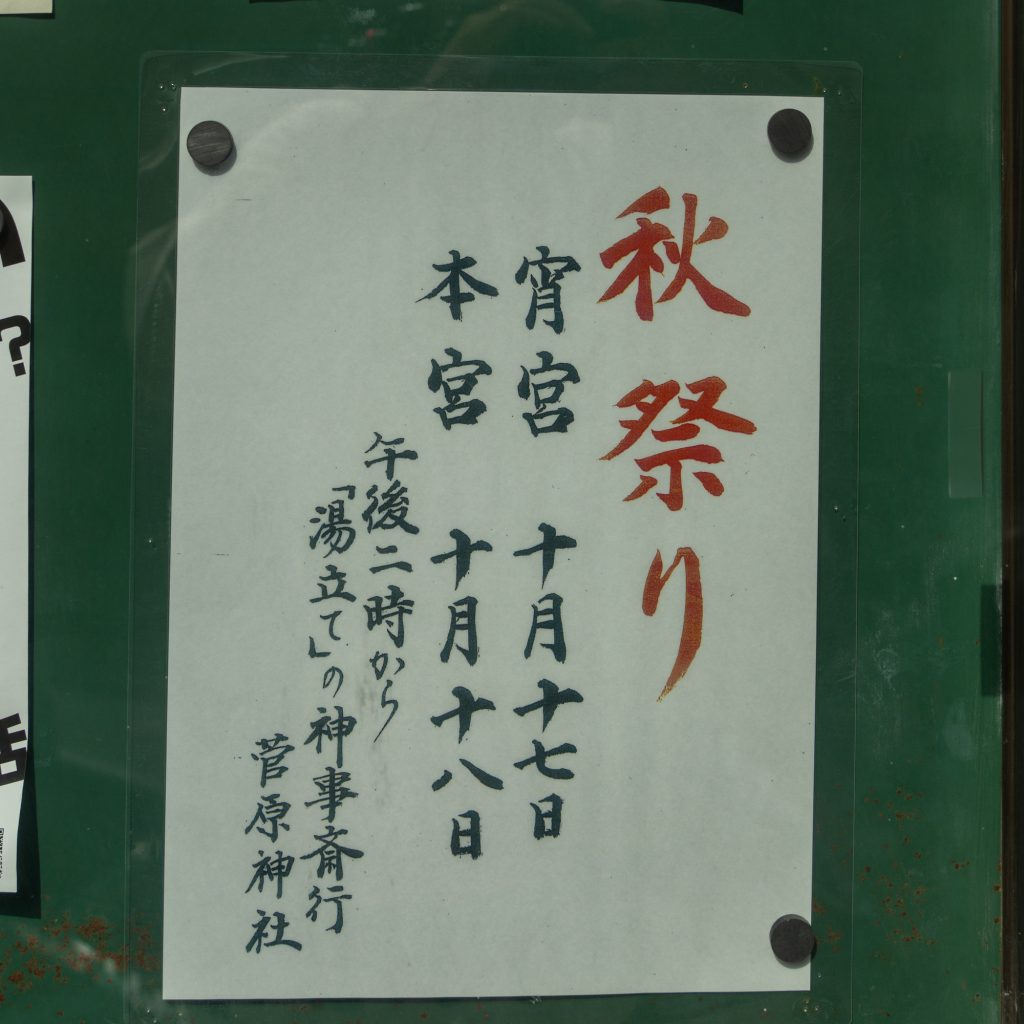 秋祭り
宵宮 十月十七日
本宮 十月十八日
午後二時から
「湯立て」の神事斎行
菅原神社
?
活